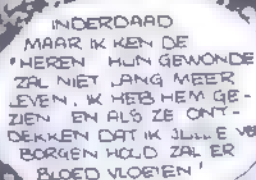 INDERDAAD
MAAR IK KEN DE
HEREN HUN GEWONDE
ZAL NIET LANG MEER
LEVEN. IK HEB HEM GE-
ZIEN EN ALS ZE ONT-
DEKKEN DAT IK JULLIE VER
BORGEN HOUD ZAL ER
BLOED VLOEIEN'